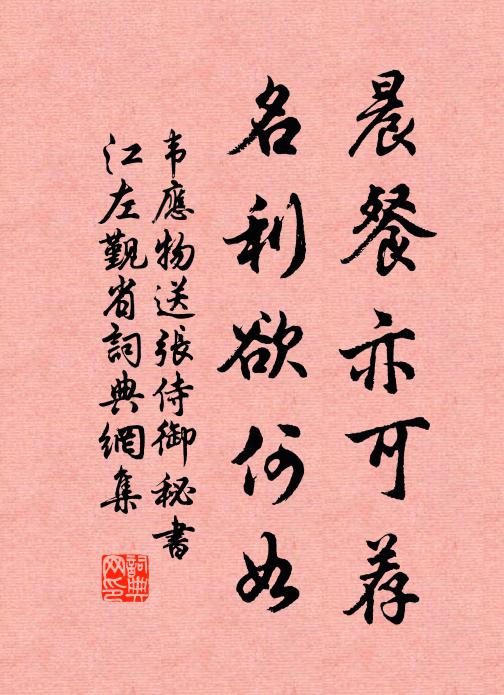 晨餐亦可荐
名利欲何如
韦應物送張侍御秘書
江左覲省詞典網集
詞典網印